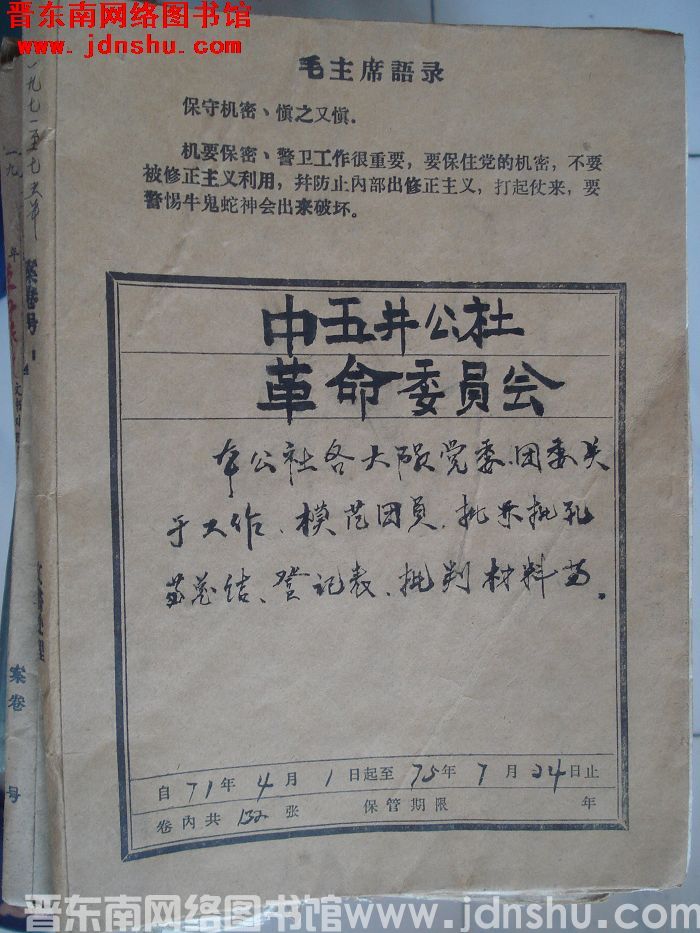 晋东南网络图书馆
www.jdnshu.com
毛主席語录
保守机密、慎之又慎.
机要保密、警卫工作很重要，要保住党的机密，不要
被修正主义利用，幷防止內部出修正主义，打起仗来，要
警惕牛鬼蛇神会出来破坏。
中五井公社
革命委员会
本公社各大队党委.团委关
于工作、模范团员、批林批孔
总结、登记表、批判材料等.
自71年4月1日起至75年7月24日止
卷內共132张 保管期限 年
一九七一至七五年
案卷号
案卷
号
晋东南网络图书馆www.jdnshu.com